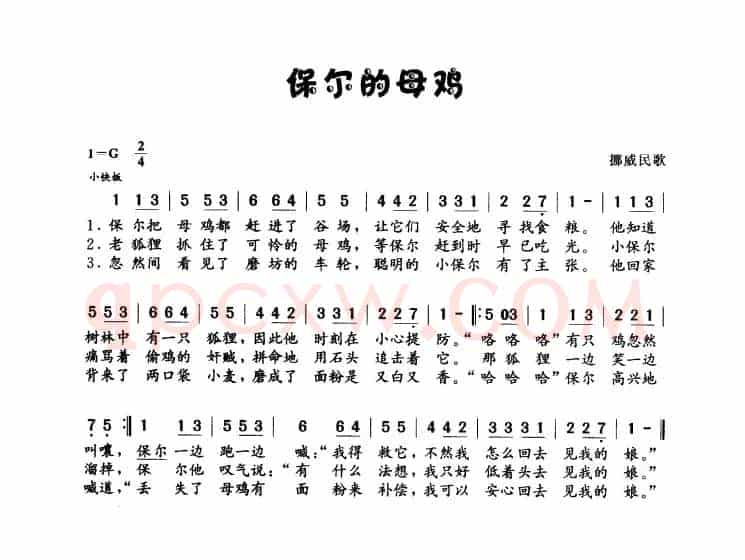 保尔的母鸡
1=G 2/4
挪威民歌
小快板
1 113 | 5 553 | 6 664 | 5 5 | 442 | 331 | 2 227 | 1 - | 113 |
1. 保 尔把 母 鸡都 赶 进了 谷 场, 让它们 安全地 寻 找食 粮。 他知道
2. 老 狐狸 抓 住了 可 怜的 母 鸡, 等保尔 赶到时 早 已吃 光。 小保尔
3. 忽 然间 看 见了 磨 坊的 车 轮, 聪明的 小保尔 有 了主 张。 他回家
553 | 664 | 5 5 | 442 | 331 | 227 | 1 - ‖: 5 03 | 1 113 | 221 |
树林中 有一只 狐狸, 因此他 时刻在 小心提 防。“咯 咯咯”有只 鸡忽然
痛骂着 偷鸡的 奸贼, 拼命地 用石头 追击着 它。 那 狐狸 一边 笑一边
背来了 两口袋 小麦, 磨成了 面粉是 又白又 香。“哈 哈哈”保尔 高兴地
gpcxw.COM
7 5 :‖ 1 13 | 553 | 6 664 | 5 5 | 442 | 331 | 227 | 1 - ‖
叫嚷, 保尔一边 跑一边 喊:“我得 救它, 不然我 怎么回去 见我的 娘。”
溜掉, 保 尔他 叹气说:“有 什么 法想, 我只好 低着头去 见我的 娘。”
喊道,“丢 失了 母鸡有 面 粉来 补偿, 我可以 安心回去 见我的 娘。”